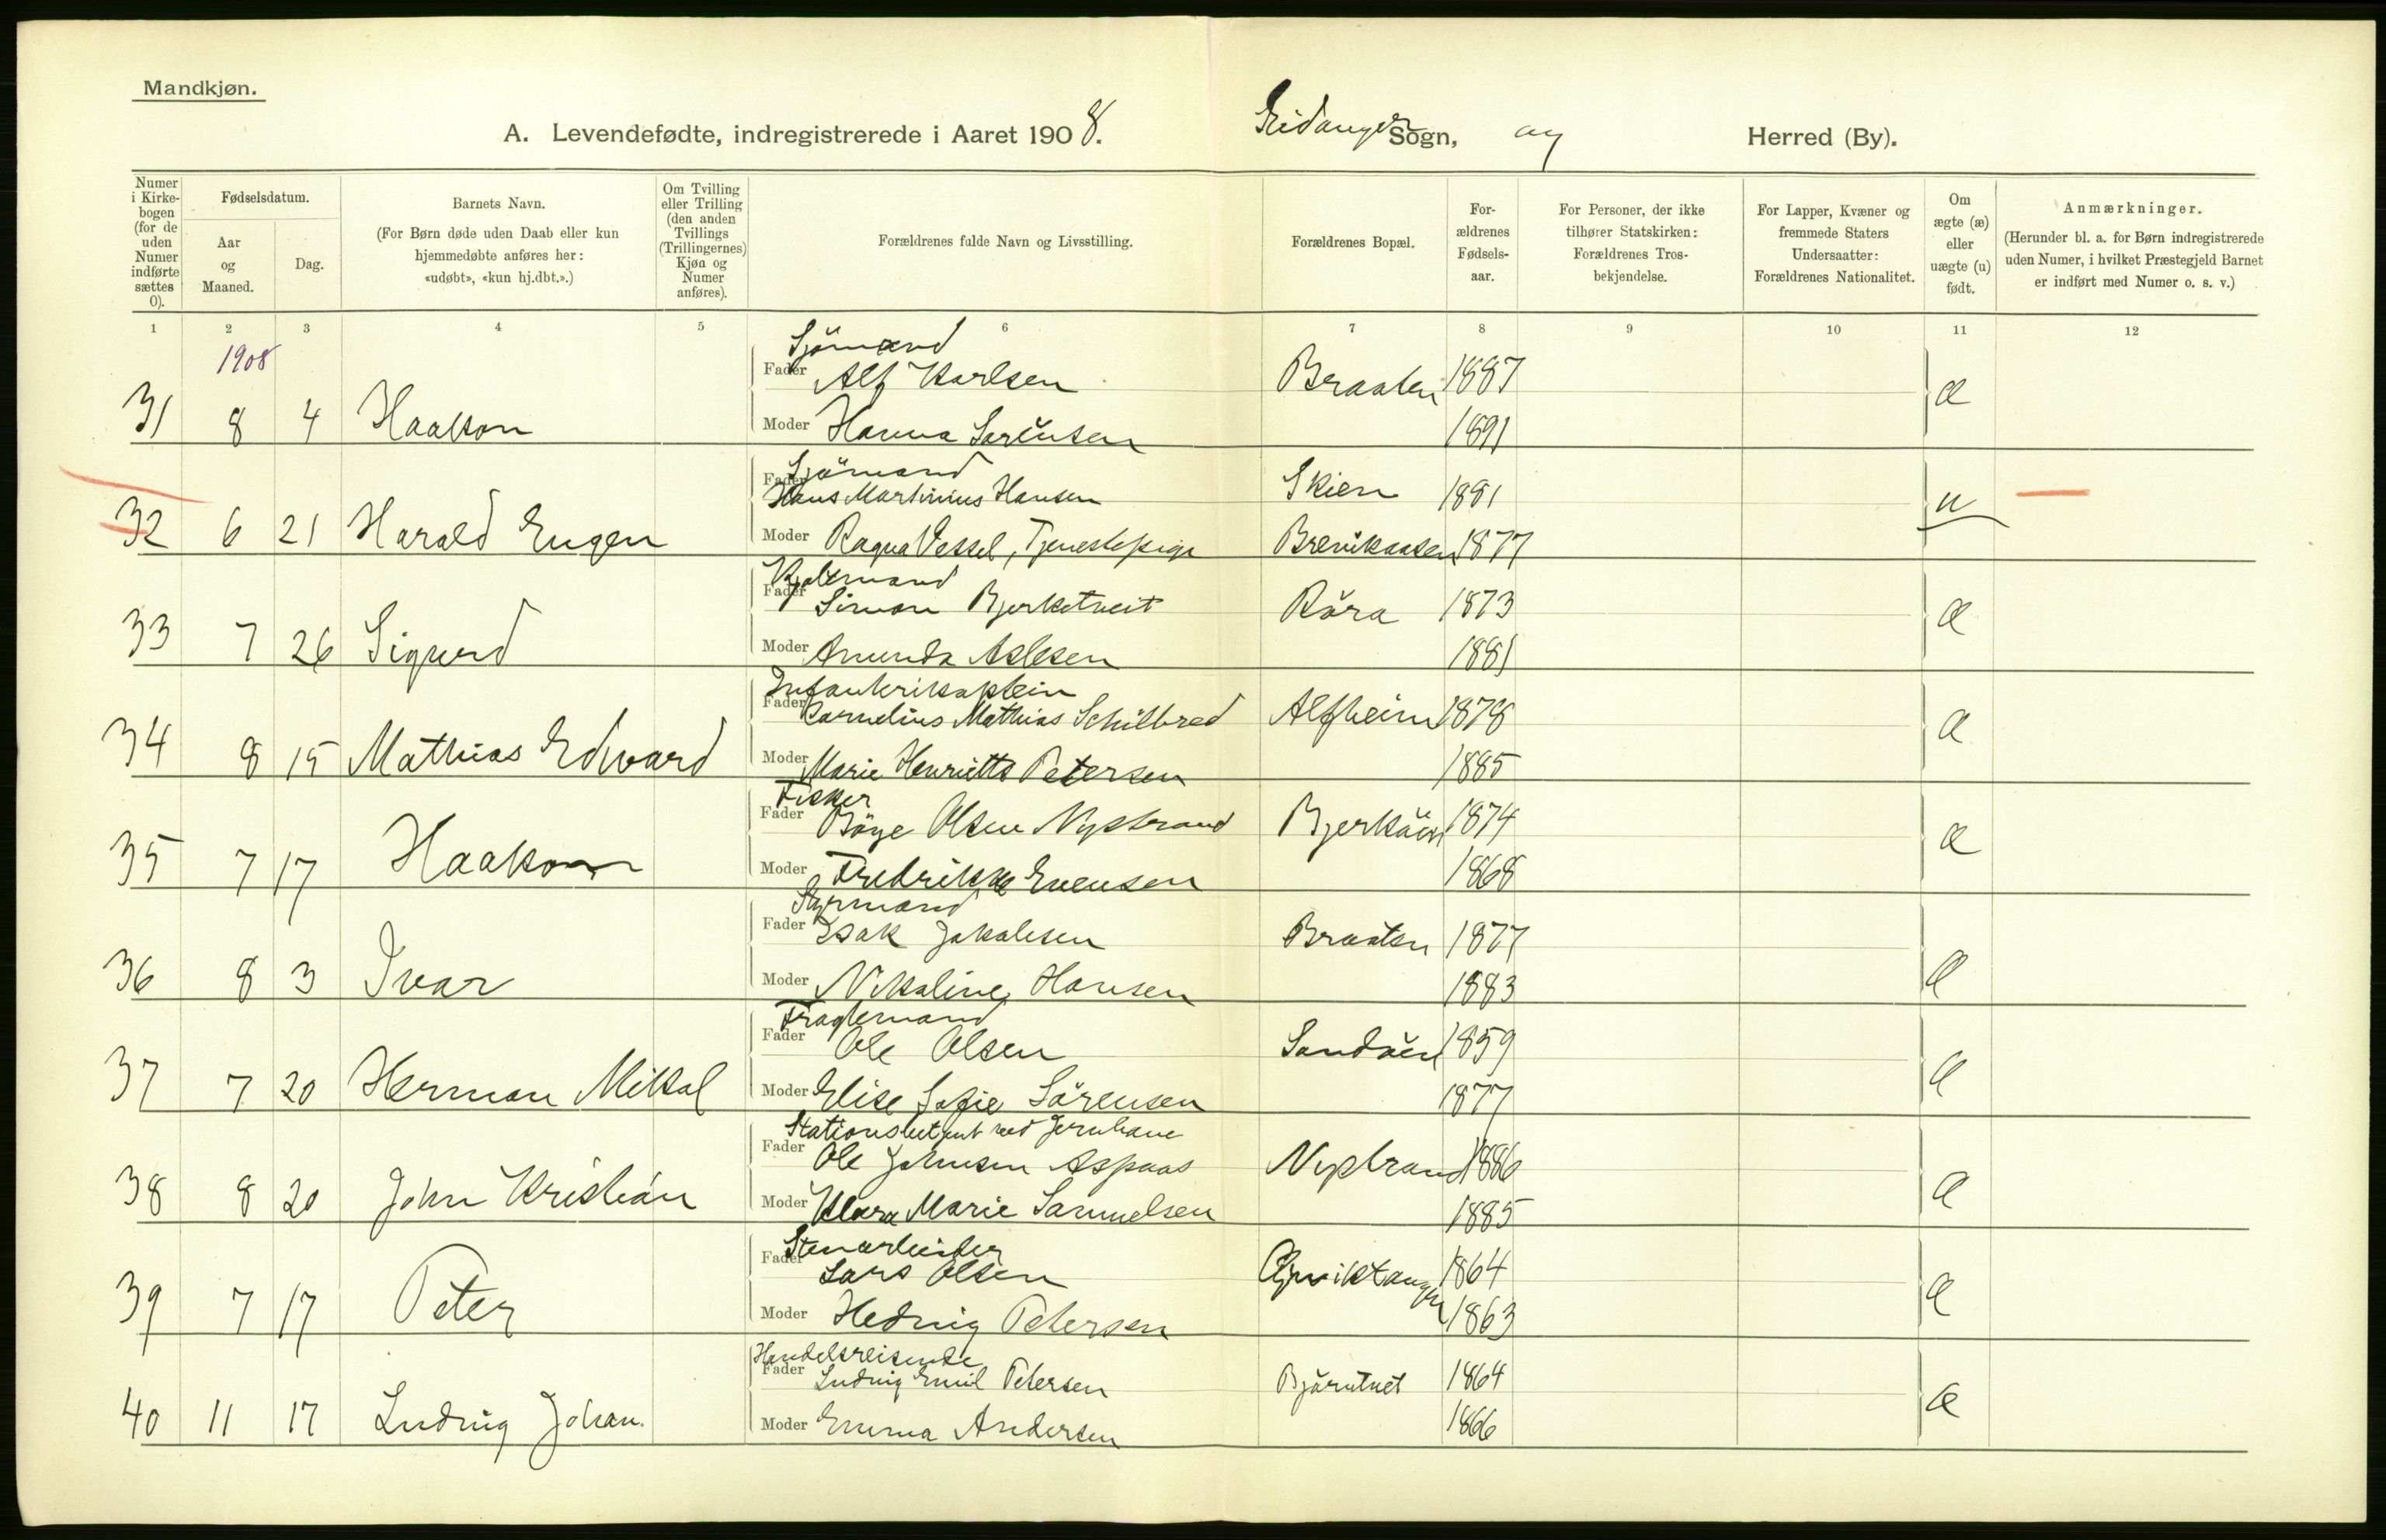 Mandkjøn.
A. Levendefødte, indregistrerede i Aaret 1908. Eidanger Sogn, og Herred (By).
Numer i Kirkebogen (for de uden Numer indførte sættes 0).
Fødselsdatum.
Aar og Maaned.
Dag.
Barnets Navn.
(For Børn døde uden Daab eller kun hjemmedøbte anføres her: «udøbt», «kun hj.dbt.».)
Om Tvilling eller Trilling (den anden Tvillings (Trillingernes) Kjøn og Numer anføres).
Forældrenes fulde Navn og Livsstilling.
Forældrenes Bopæl.
Forældrenes Fødselsaar.
For Personer, der ikke tilhører Statskirken: Forældrenes Trosbekjendelse.
For Lapper, Kvæner og fremmede Staters Undersaatter: Forældrenes Nationalitet.
Om ægte (æ) eller uægte (u) født.
Anmærkninger.
(Herunder bl. a. for Børn indregistrerede uden Numer, i hvilket Præstegjeld Barnet er indført med Numer o. s. v.)
1 2 3 4 5 6 7 8 9 10 11 12
1908
Sjömand
Fader Alf Karlsen Braaten 1887 æ
31 8 4 Haakon Moder Hanna Sörensen 1891
Sjömand
Fader Hans Martinius Hansen Skien 1881 u
32 6 21 Harald Eugen Moder Ragna Vessel, Tjenestepige Brevikaasen 1877
Fader Simon Bjerketveit Röra 1873 æ
33 7 26 Sigurd Moder Amunda Aslesen 1881
Infanterikaptein
Fader Cornelius Mathias Schilbred Alfheim 1878 æ
34 8 15 Mathias Edvard Moder Marie Henriette Petersen 1885
Fisker
Fader Böye Olsen Nystrand Bjerköen 1874 æ
35 7 17 Haakon Moder Fredrikke Evensen 1868
Styrmand
Fader Isak Jakobsen Braaten 1877 æ
36 8 3 Ivar Moder Nikoline Hansen 1883
Fragtemand
Fader Ole Olsen Sandöen 1859 æ
37 7 20 Herman Mikal Moder Elise Sofie Sörensen 1877
Stationsbetjent ved Jernbane
Fader Ole Johnsen Aspaas Nystrand 1886 æ
38 8 20 John Kristian Moder Klara Marie Samuelsen 1885
Stenarbeider
Fader Lars Olsen 1864 æ
39 7 17 Peter Moder Hedvig Petersen 1863
Handelsreisende
Fader Ludvig Emil Petersen Bjärntvet 1864 æ
40 11 17 Ludvig Johan. Moder Emma Andersen 1866